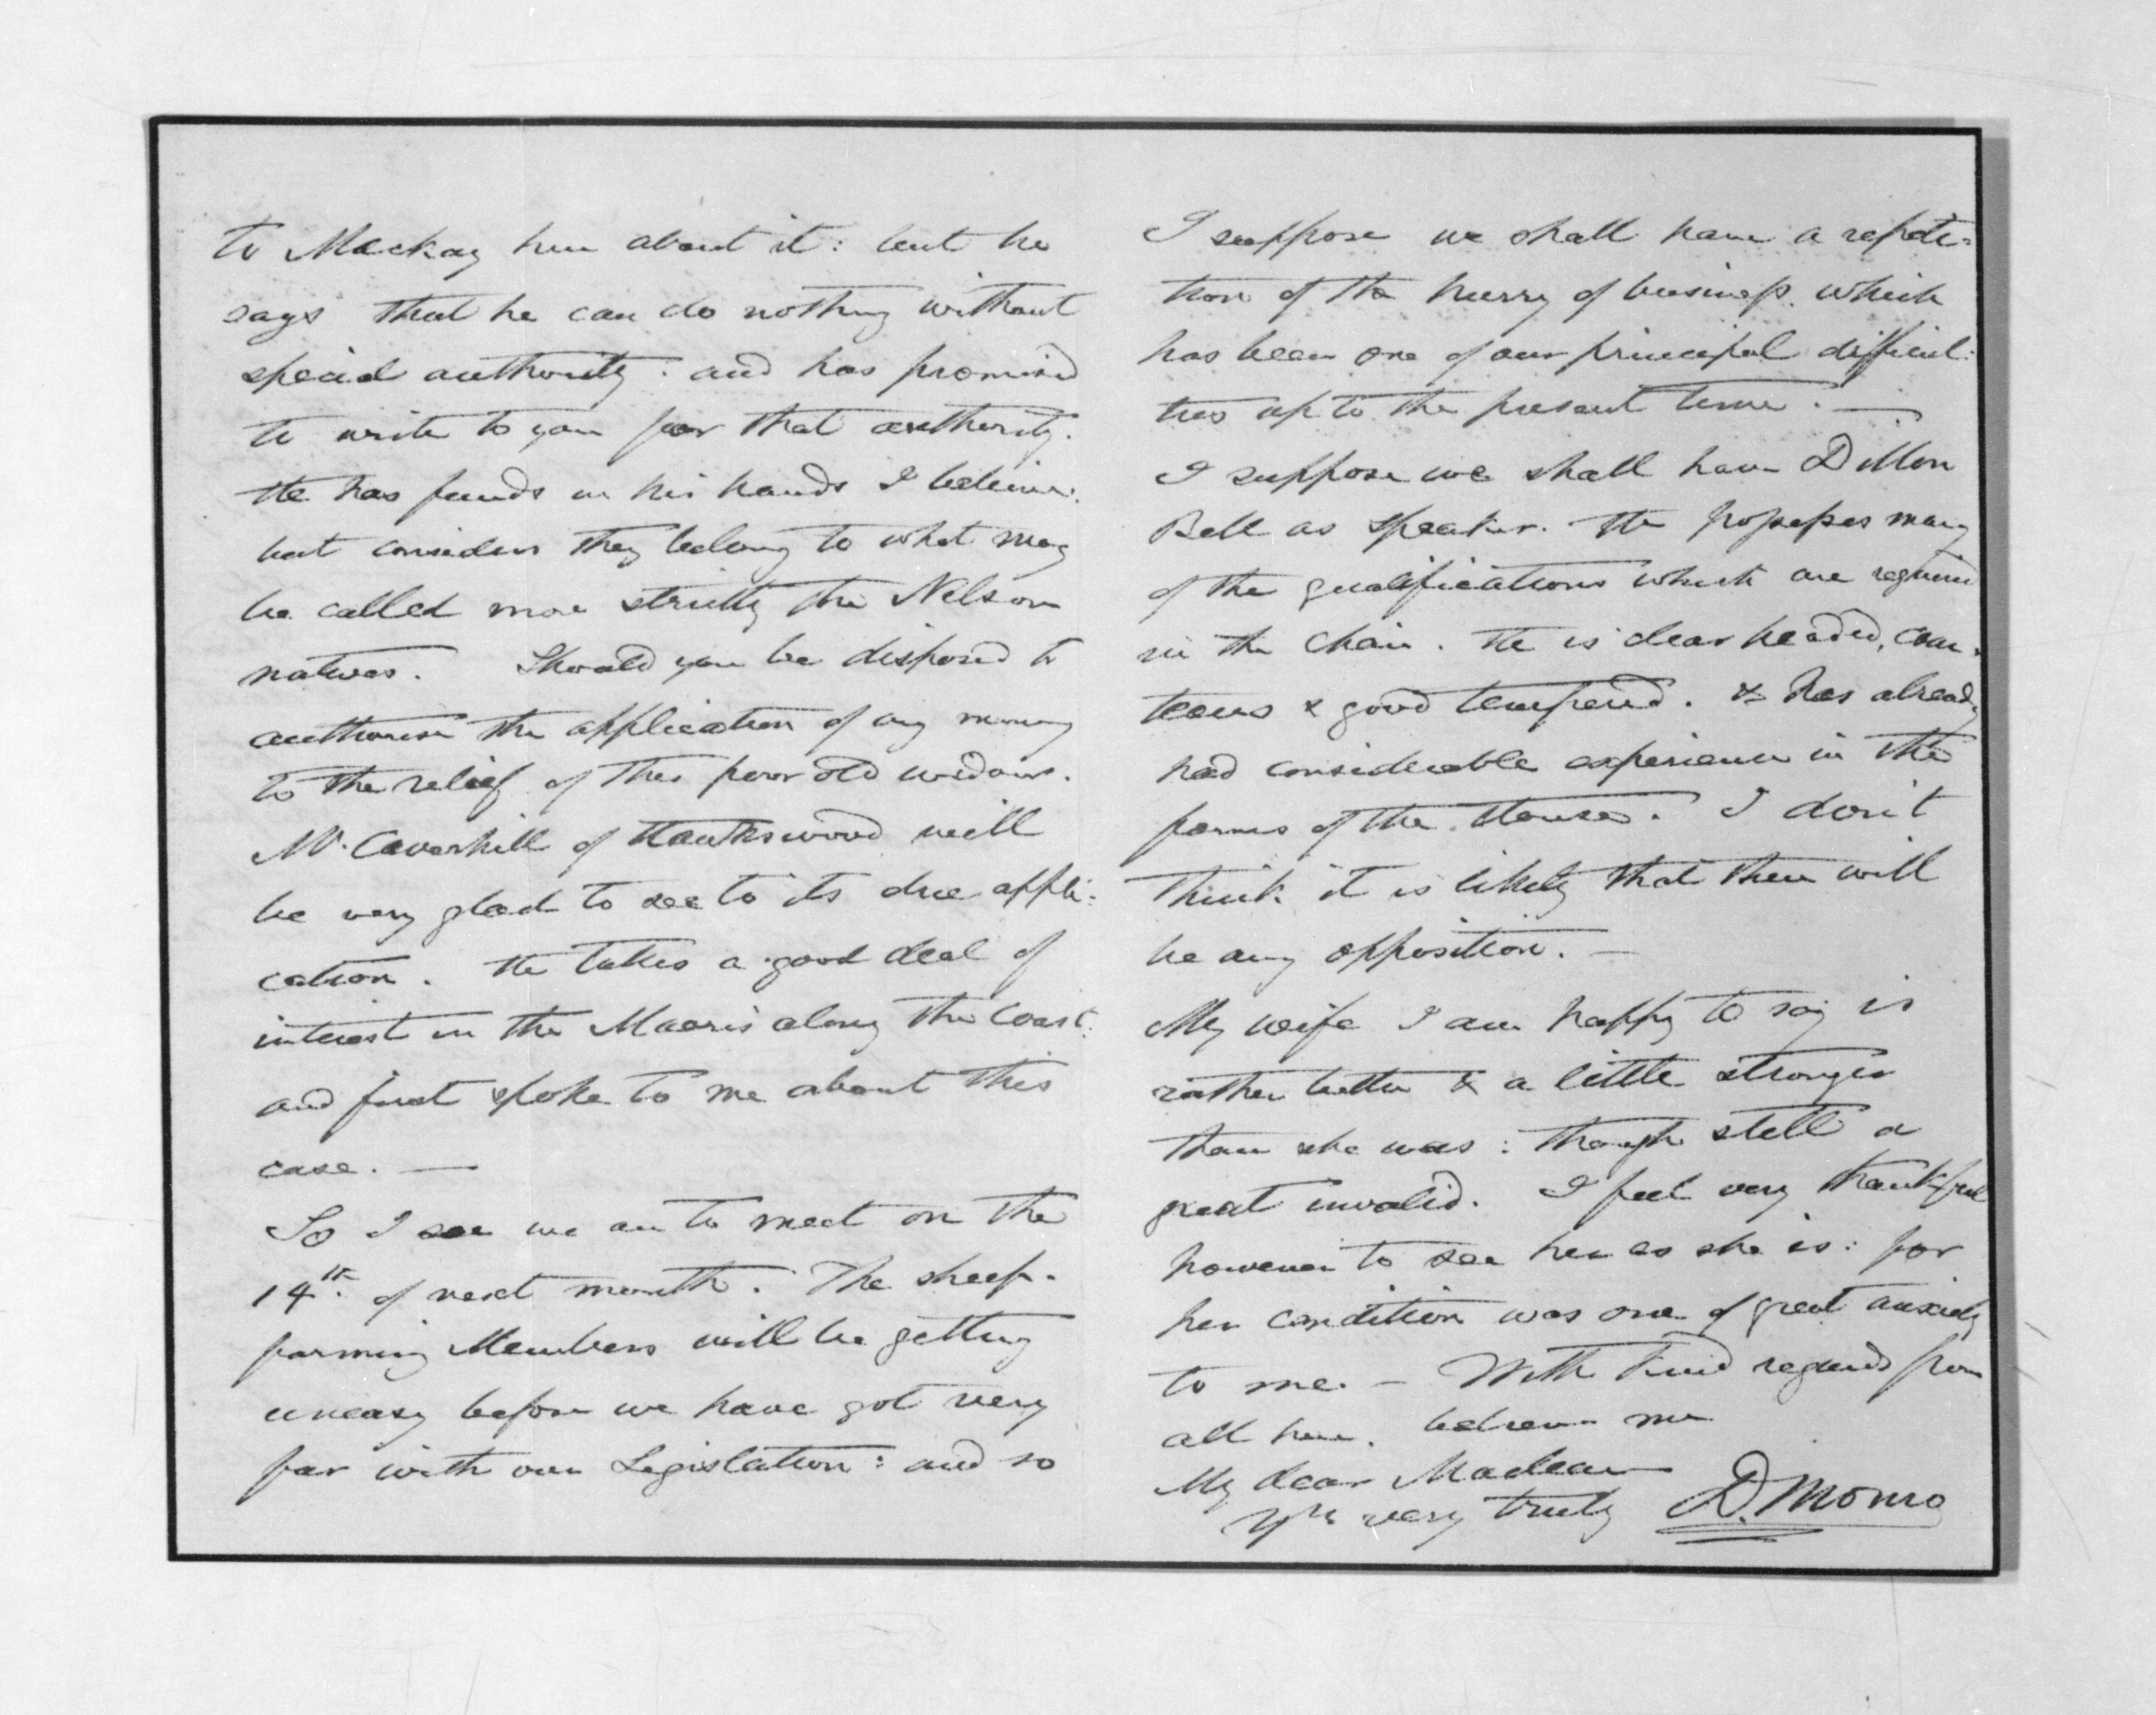 to Mackay here about it: but he
says that he can do nothing without
special authority: and has promised
to write to you for that authority.
He has funds in his hands I believe:
but considers they belong to what may
be called more strictly the Nelson
natives. Should you be disposed to
authorise the application of any money
to the relief of this poor old widow.
Mr. Caverhill of Hawkswood will
be very glad to see to its due appli:
cation. He takes a good deal of
interest in the Maoris along the Coast:
and first spoke to me about this
case. —
So I see we are to meet on the
14th. of next month. The sheep-
farming Members will be getting
uneasy before we have got very
far with our Legislation: and so
I suppose we shall have a repeti:
tion of the hurry of business. which
has been one of our principal difficul:
ties up to the present time. —
I suppose we shall have Dillon
Bell as Speaker. He possesses many
of the qualifications which are required
in the Chair. He is clear headed, cour:
teous & good tempered. & has already
had considerable experience in the
forms of the House. I don't
think it is likely that there will
be any opposition. —
My wife I am happy to say is
rather better & a little stronger
than she was: though still a
great invalid. I feel very thankful
however to see her as she is: for
her condition was one of great anxiety
to me. — With kind regards from
all here. believe me
My dear Maclean
Yrs very truly D. Monro